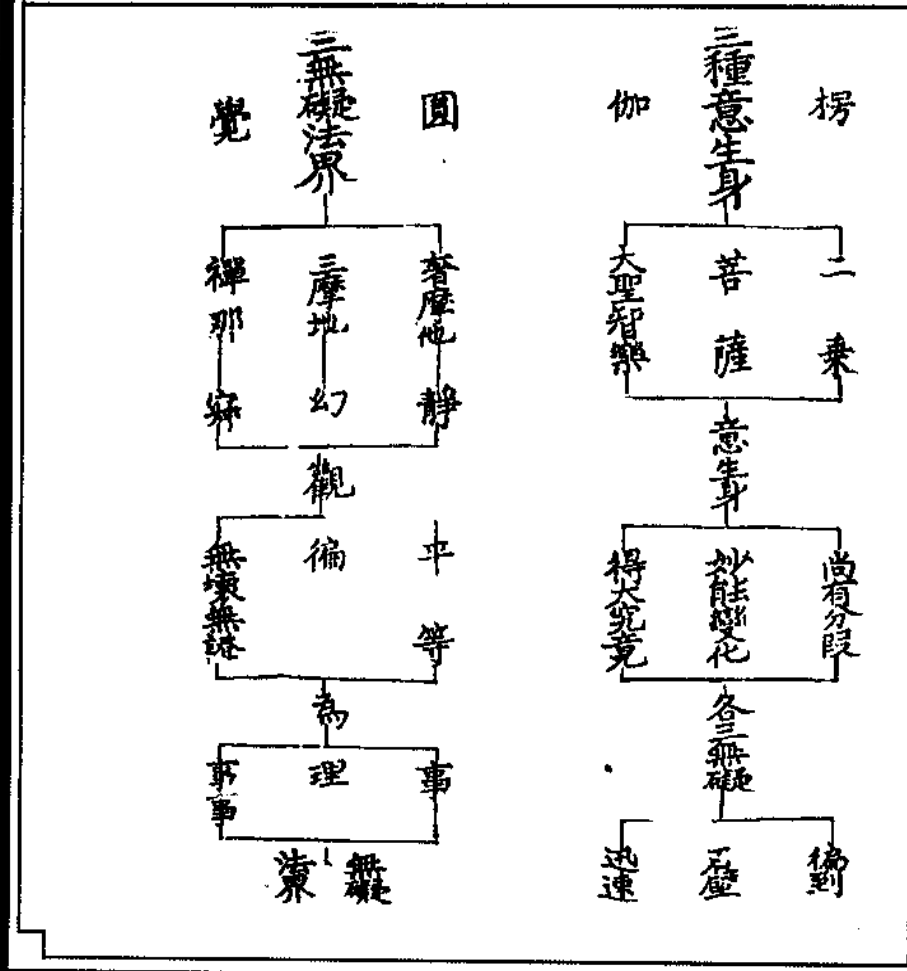 楞
三種意生身
伽
二乘
菩薩
大聖智樂
意生身
尚有分段
妙能變化
得大究竟
各三無礙
徧到
石壁
迅速
圓
三無礙法界
覺
奢摩他 靜
三摩地 幻
禪那 寂
觀
平等
徧
無壞無雜
為
事
理
事事
無礙
法界